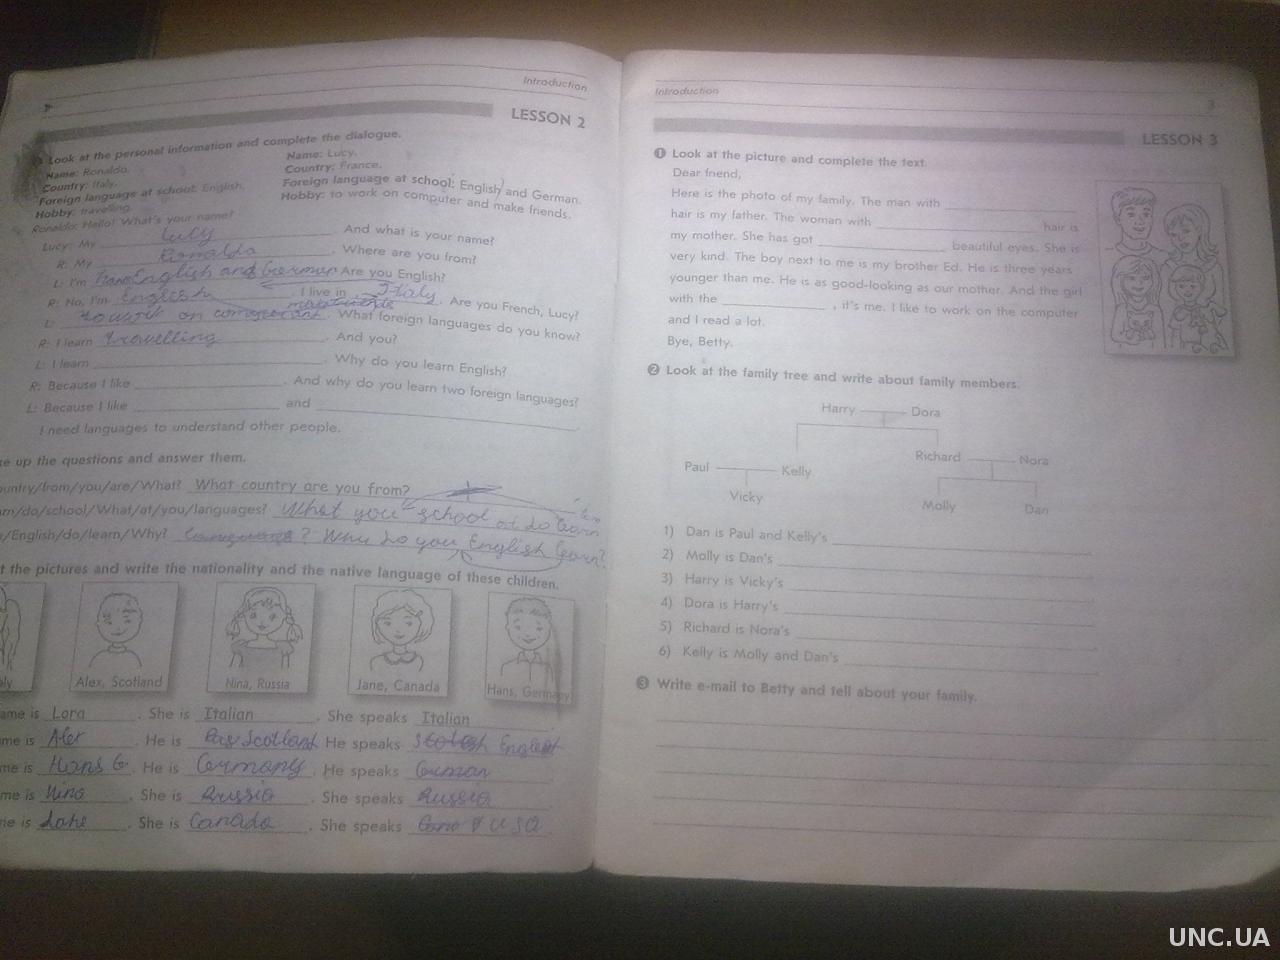 Introduction
LESSON 2
Look at the personal information and complete the dialogue.
Name: Ronaldo.
Country: Italy.
Foreign language at school: English.
Hobby: travelling.
Name: Lucy.
Country: France.
Foreign language at school: English and German.
Hobby: to work on computer and make friends.
Ronaldo: Hello! What's your name?
Lucy: My Lucy And what is your name?
R: My Ronaldo . Where are you from?
L: I'm English and German Are you English?
R: No, I'm English . I live in Italy . Are you French, Lucy?
L: . What foreign languages do you know?
R: I learn travelling . And you?
L: I learn . Why do you learn English?
R: Because I like . And why do you learn two foreign languages?
L: Because I like and .
I need languages to understand other people.
up the questions and answer them.
/from/you/are/What? What country are you from?
/do/school/What/at/you/languages? What you school at do learn
/English/do/learn/Why? ? Why do you English learn?
t the pictures and write the nationality and the native language of these children.
Alex, Scotland
Nina, Russia
Jane, Canada
Hans, Germany
ame is Lora . She is Italian . She speaks Italian
me is Alex . He is Scotland He speaks English
me is Hans G . He is Germany . He speaks German
me is Nina . She is Russia . She speaks Russia
me is Jane . She is Canada . She speaks USA
Introduction
3
LESSON 3
1 Look at the picture and complete the text.
Dear friend,
Here is the photo of my family. The man with
hair is my father. The woman with hair is
my mother. She has got beautiful eyes. She is
very kind. The boy next to me is my brother Ed. He is three years
younger than me. He is as good-looking as our mother. And the girl
with the , it's me. I like to work on the computer
and I read a lot.
Bye, Betty.
2 Look at the family tree and write about family members.
Harry Dora
Paul Kelly Richard Nora
Vicky Molly Dan
1) Dan is Paul and Kelly's
2) Molly is Dan's
3) Harry is Vicky's
4) Dora is Harry's
5) Richard is Nora's
6) Kelly is Molly and Dan's
3 Write e-mail to Betty and tell about your family.
UNC.UA